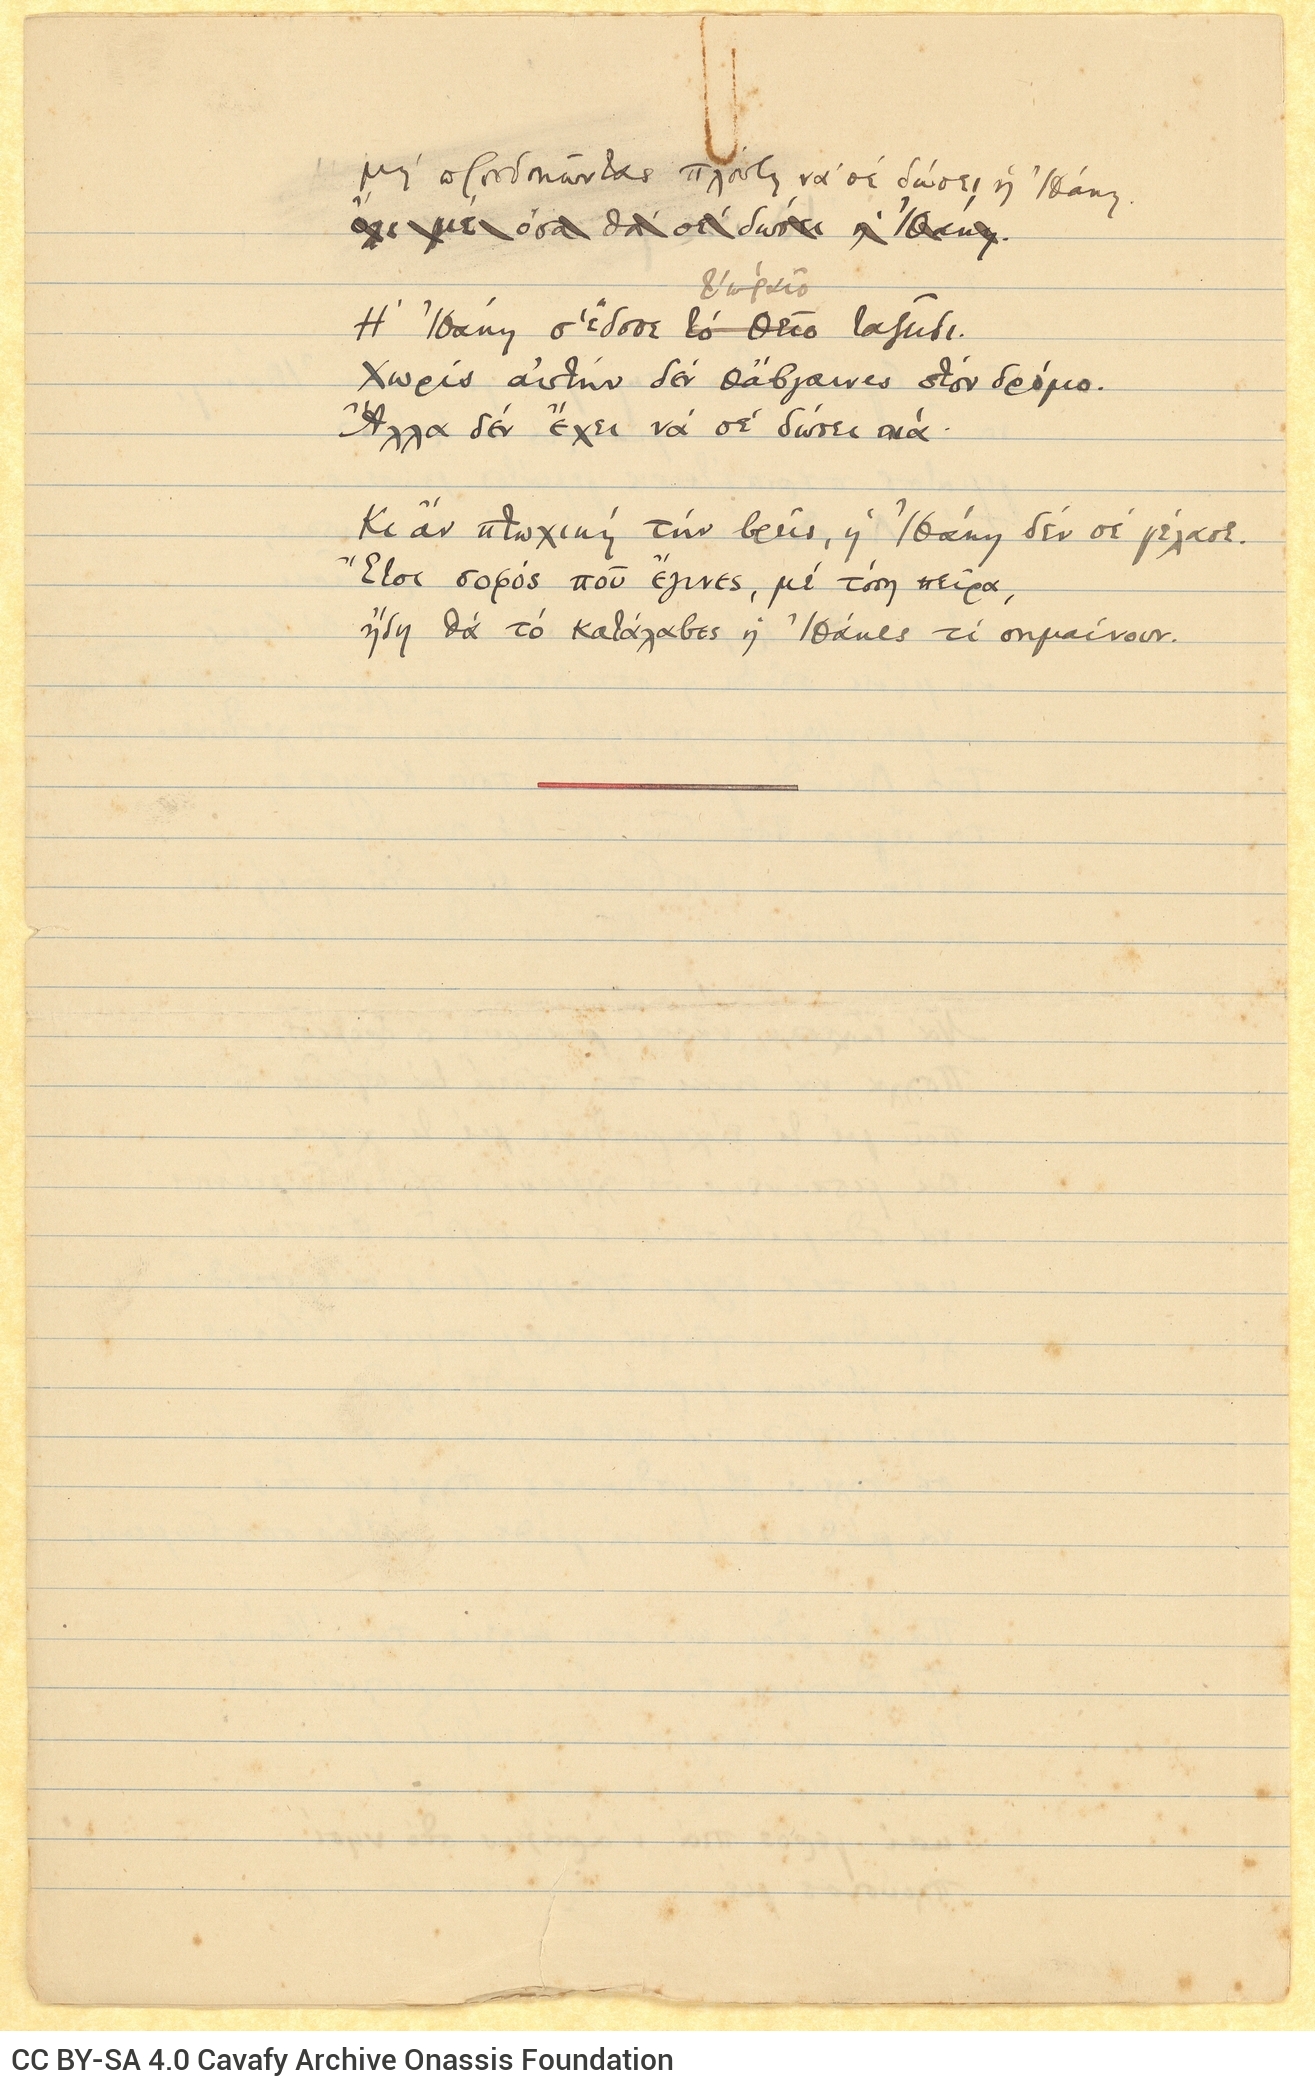 μή προσδοκῶντας πλούτη νά σέ δώσει ἡ Ἰθάκη.
ὄχι μέ ὅσα θά σέ δώσει ἡ Ἰθάκη.
τ' ὡραῖο
Ἡ Ἰθάκη σ' ἔδωσε τό θεῖο ταξεῖδι.
Χωρίς αὐτήν δέν θἄβγαινες στόν δρόμο.
Ἄλλα δέν ἔχει νά σέ δώσει πιά.
Κι ἄν πτωχική τήν βρεῖς, ἡ Ἰθάκη δέν σέ γέλασε.
Ἔτσι σοφός πού ἔγινες, μέ τόση πεῖρα,
ἤδη θά τό κατάλαβες ἡ Ἰθάκες τί σημαίνουν.
CC BY-SA 4.0 Cavafy Archive Onassis Foundation